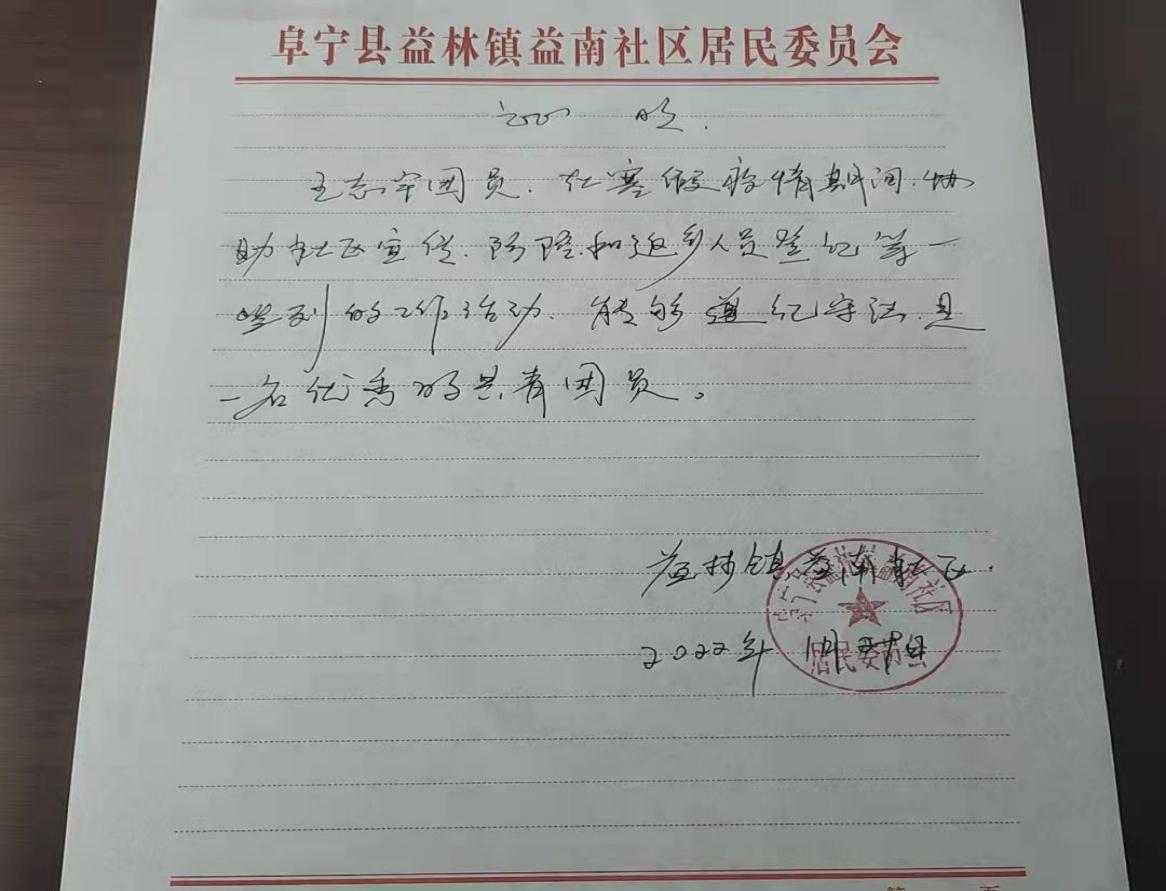 阜宁县益林镇益南社区居民委员会
证 明.
王志宇团员.在寒假疫情期间.协
助社区宣传.防疫.和返乡人员登记等一
系列的工作活动.能够遵纪守法.是
一名优秀的共青团员。
益林镇益南社区.
阜宁县益林镇益南社区
2022年1月2日
居民委员会
第 页